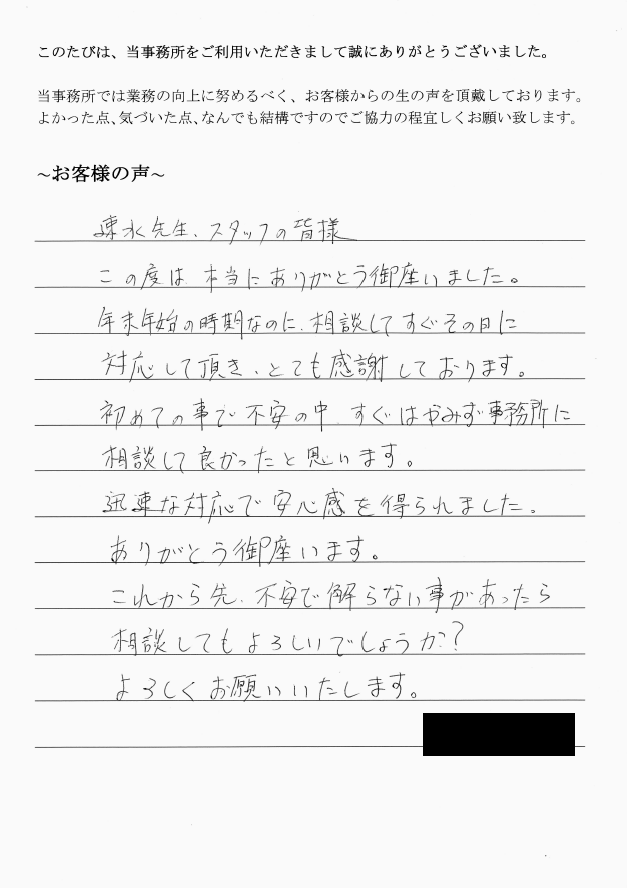 このたびは、当事務所をご利用いただきまして誠にありがとうございました。
当事務所では業務の向上に努めるべく、お客様からの生の声を頂戴しております。
よかった点、気づいた点、なんでも結構ですのでご協力の程宜しくお願い致します。
~お客様の声~
速水先生、スタッフの皆様
この度は、本当にありがとう御座いました。
年末年始の時期なのに、相談してすぐその日に
対応して頂き、とても感謝しております。
初めての事で不安の中、すぐはやみず事務所に
相談して良かったと思います。
迅速な対応で安心感を得られました。
ありがとう御座います。
これから先、不安で解らない事があったら
相談してもよろしいでしょうか?
よろしくお願いいたします。